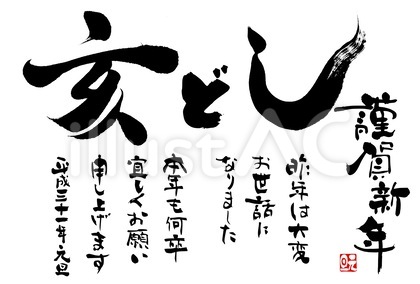 亥どし
謹賀新年
昨年は大変
お世話に
なりました
本年も何卒
宜しくお願い
申し上げます
平成三十一年・元旦
illustAC